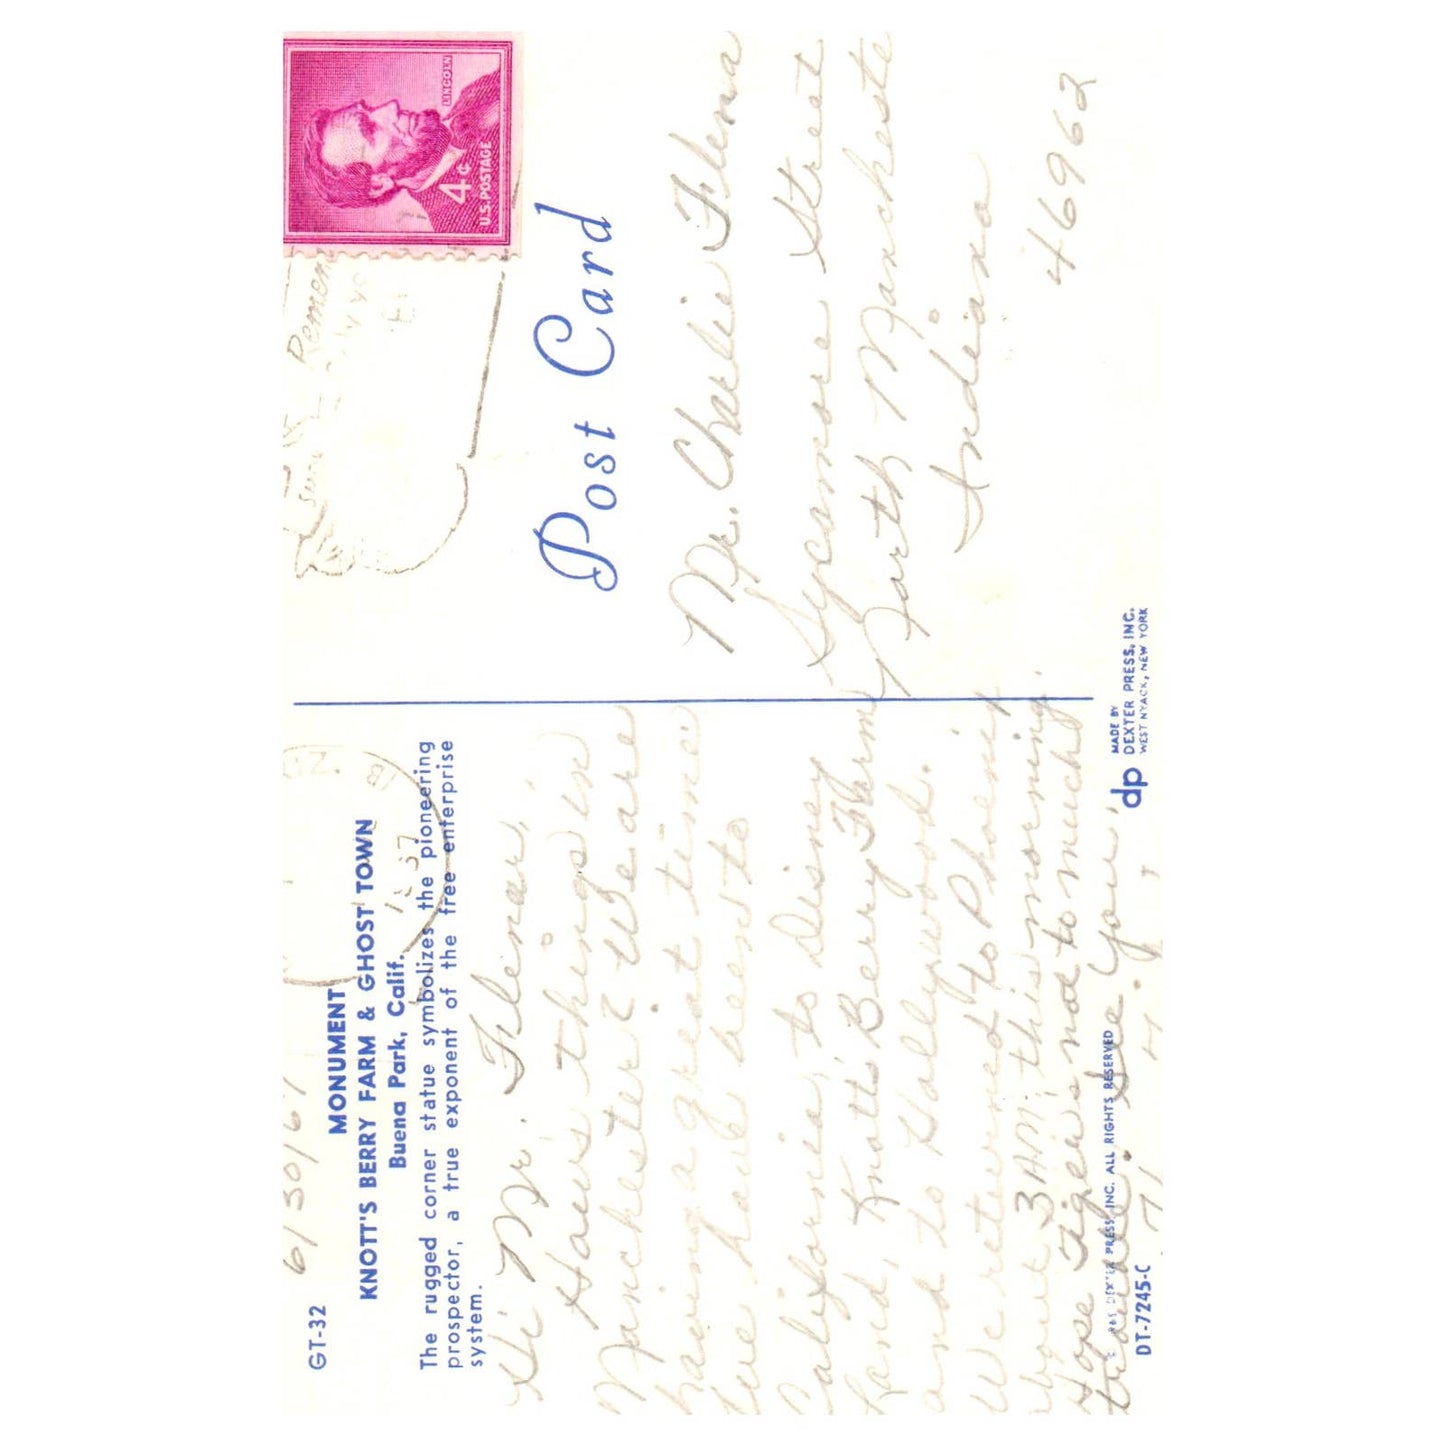 6/30/67
GT-32
MONUMENT
KNOTT'S BERRY FARM & GHOST TOWN
Buena Park, Calif.
The rugged corner statue symbolizes the pioneering
prospector, a true exponent of the free enterprise
system.
Hi Mr. Flenar,
Hows things in
Manchester? We are
having a great time
we have been to
California, to Disney
Land, Knotts Berry Farm
and to Hollywood.
We returned to Phoenix
about 3 AM. this morning.
Hope Tiger is not to much
trouble. See you.
© DEXTER PRESS, INC. ALL RIGHTS RESERVED
DT-7245-C
MADE BY
dp DEXTER PRESS, INC.
WEST NYACK, NEW YORK
LINCOLN
4¢
U.S. POSTAGE
Post Card
Mr. Charlie Flenar
Sycamore Street
North Manchester
Indiana
46962